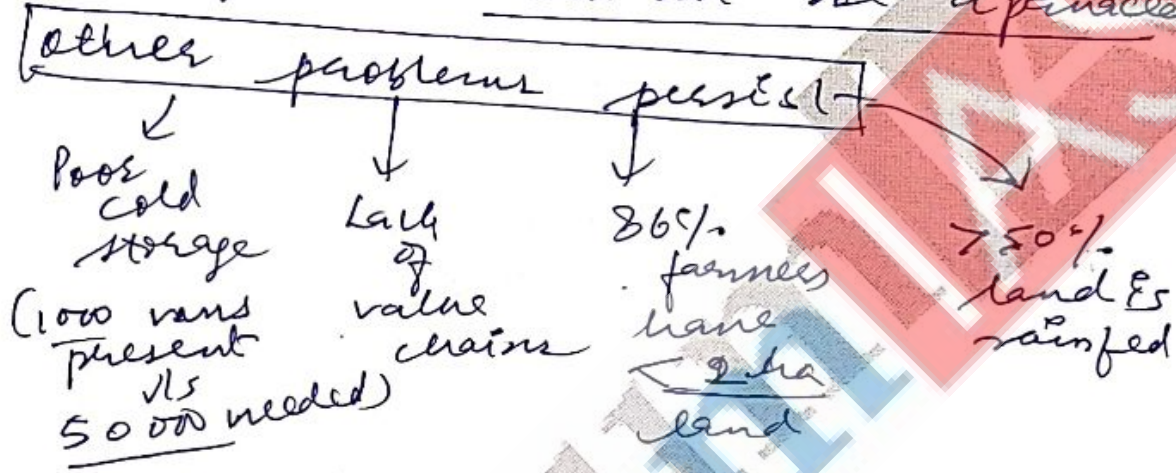 a panacea
other problems persist
Poor
cold
storage
(1000 vans
present
v/s
50000 needed)
Lack
of
value
chains
86%
farmers
have
< 2 ha
land
> 50%
land is
rainfed